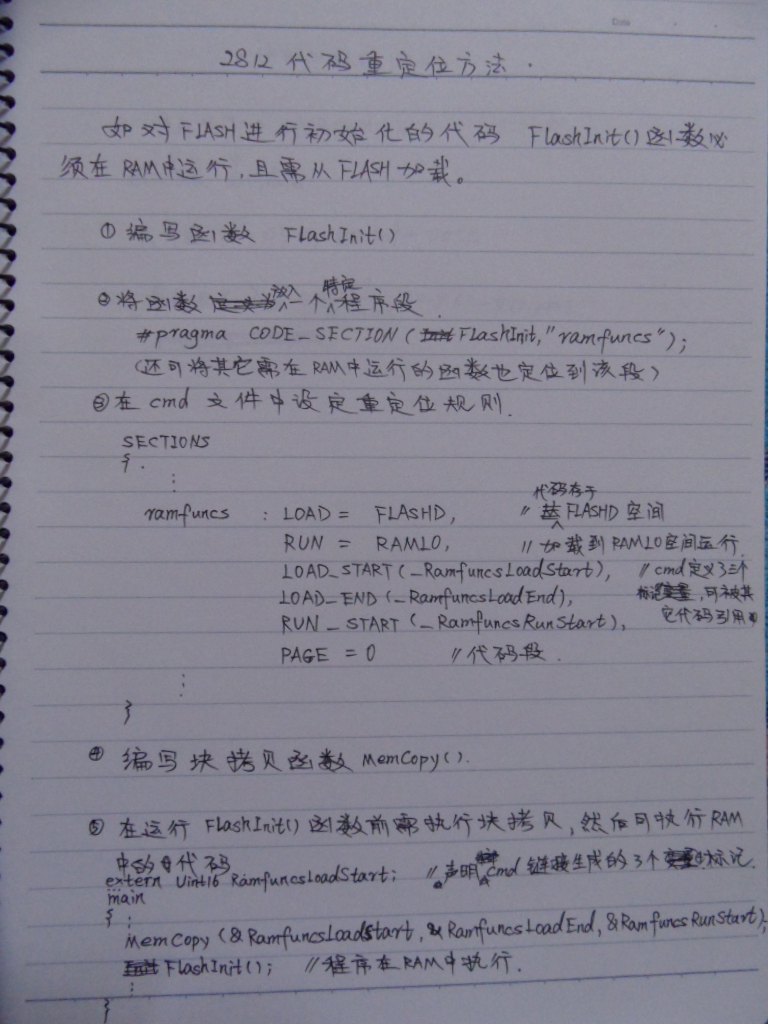 2812 代码重定位方法.
如对FLASH进行初始化的代码 FlashInit()函数必
须在RAM中运行,且需从FLASH加载。
① 编写函数 FlashInit()
② 将函数放入一个特定程序段.
#pragma CODE_SECTION(FlashInit,"ramfuncs");
(还可将其它需在RAM中运行的函数也定位到该段)
③ 在cmd文件中设定重定位规则.
SECTIONS
{
⋮
ramfuncs : LOAD = FLASHD, // 代码存于FLASHD空间
RUN = RAML0, // 加载到RAML0空间运行.
LOAD_START(_RamfuncsLoadStart), // cmd定义了三个
LOAD_END(_RamfuncsLoadEnd), 标记,可被其
RUN_START(_RamfuncsRunStart), 它代码引用
PAGE = 0 // 代码段.
⋮
}
④ 编写块拷贝函数 MemCopy().
⑤ 在运行FlashInit()函数前需执行块拷贝,然后可执行RAM
中的代码
extern Uint16 RamfuncsLoadStart; // 声明cmd链接生成的3个标记.
main
{ ⋮
MemCopy(&RamfuncsLoadStart, &RamfuncsLoadEnd, &RamfuncsRunStart);
FlashInit(); // 程序在RAM中执行.
⋮
}